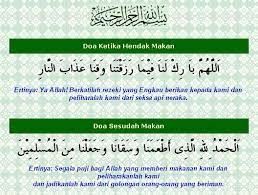 بسم الله الرحمن الرحيم
Doa Ketika Hendak Makan
اَللّٰهُمَّ بَارِكْ لَنَا فِيْمَا رَزَقْتَنَا وَقِنَا عَذَابَ النَّارِ
Ertinya: Ya Allah! Berkatilah rezeki yang Engkau berikan kepada kami dan
peliharalah kami dari seksa api neraka.
Doa Sesudah Makan
اَلْحَمْدُ لِلّٰهِ الَّذِى أَطْعَمَنَا وَسَقَانَا وَجَعَلَنَا مِنَ الْمُسْلِمِيْنَ
Ertinya: Segala puji bagi Allah yang memberi makanan kami dan
peliharakanlah kami
dan jadikanlah kami dari golongan orang-orang yang beriman.